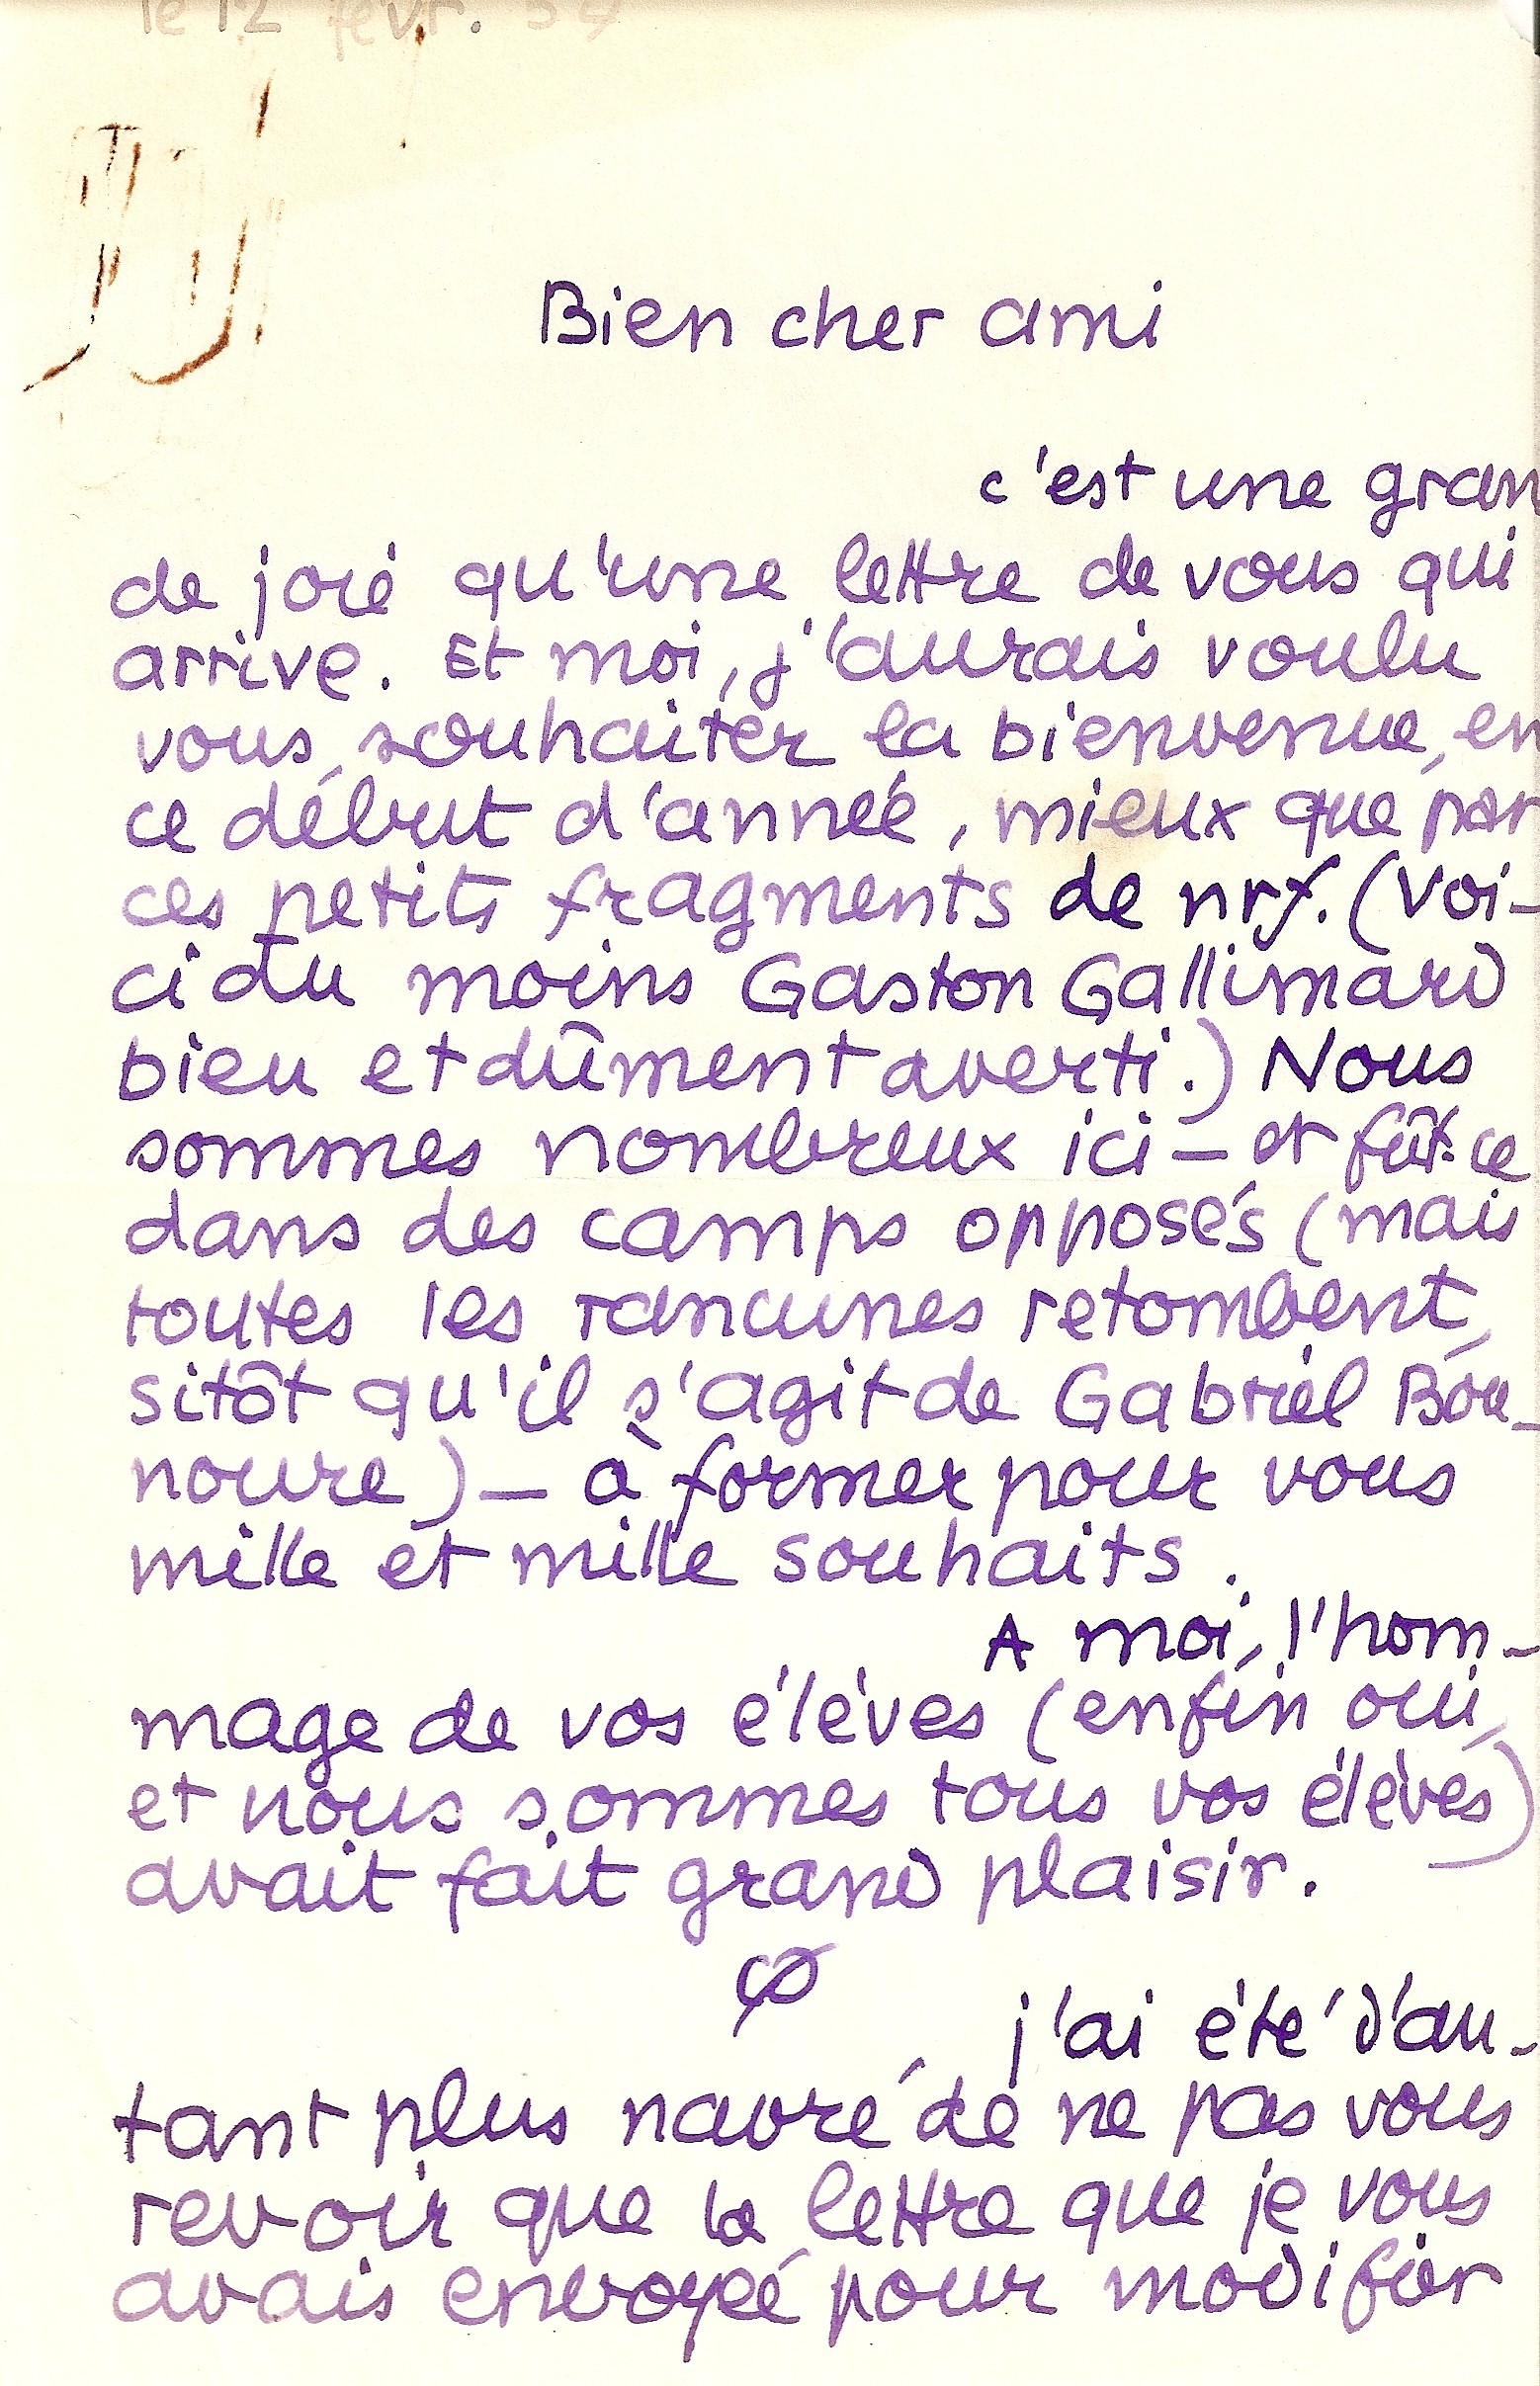 le 12 févr. 54
Bien cher ami
c'est une gran
de joie qu'une lettre de vous qui
arrive. Et moi, j'aurais voulu
vous souhaiter la bienvenue, en
ce début d'année, mieux que par
ces petits fragments de nrf. (Voi-
ci du moins Gaston Gallimard
bien et dûment averti.) Nous
sommes nombreux ici — et fût-ce
dans des camps opposés (mais
toutes les rancunes retombent,
sitôt qu'il s'agit de Gabriel Bou-
noure) — à former pour vous
mille et mille souhaits.
A moi, l'hom-
mage de vos élèves (enfin oui,
et nous sommes tous vos élèves)
avait fait grand plaisir.
j'ai été d'au-
tant plus navré de ne pas vous
revoir que la lettre que je vous
avais envoyée pour modifier